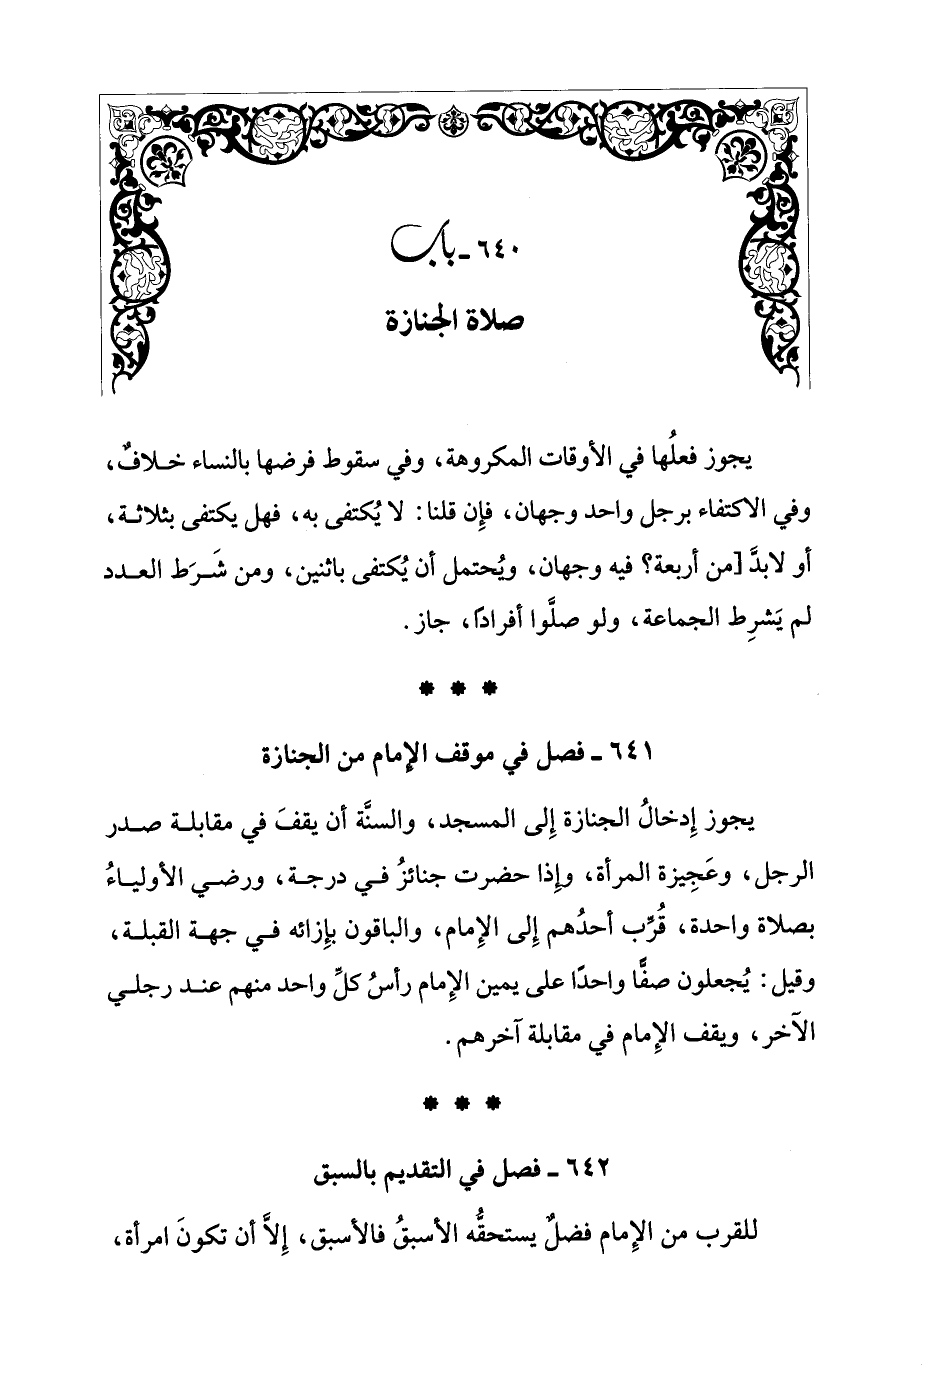 ٦٤٠ ـ باب
صلاة الجنازة
يجوز فعلُها في الأوقات المكروهة، وفي سقوط فرضها بالنساء خلافٌ،
وفي الاكتفاء برجل واحد وجهان، فإن قلنا: لا يُكتفى به، فهل يكتفى بثلاثة،
أو لابدَّ [من أربعة؟ فيه وجهان، ويُحتمل أن يُكتفى باثنين، ومن شَرَط العدد
لم يَشرِط الجماعة، ولو صلَّوا أفرادًا، جاز.
* * *
٦٤١ ـ فصل في موقف الإمام من الجنازة
يجوز إدخالُ الجنازة إلى المسجد، والسنَّة أن يقفَ في مقابلة صدر
الرجل، وعَجِيزة المرأة، وإذا حضرت جنائزُ في درجة، ورضي الأولياءُ
بصلاة واحدة، قُرِّب أحدُهم إلى الإمام، والباقون بإزائه في جهة القبلة،
وقيل: يُجعلون صفًّا واحدًا على يمين الإمام رأسُ كلِّ واحد منهم عند رجلي
الآخر، ويقف الإمام في مقابلة آخرهم.
* * *
٦٤٢ ـ فصل في التقديم بالسبق
للقرب من الإمام فضلٌ يستحقُّه الأسبقُ فالأسبق، إلاَّ أن تكونَ امرأة،